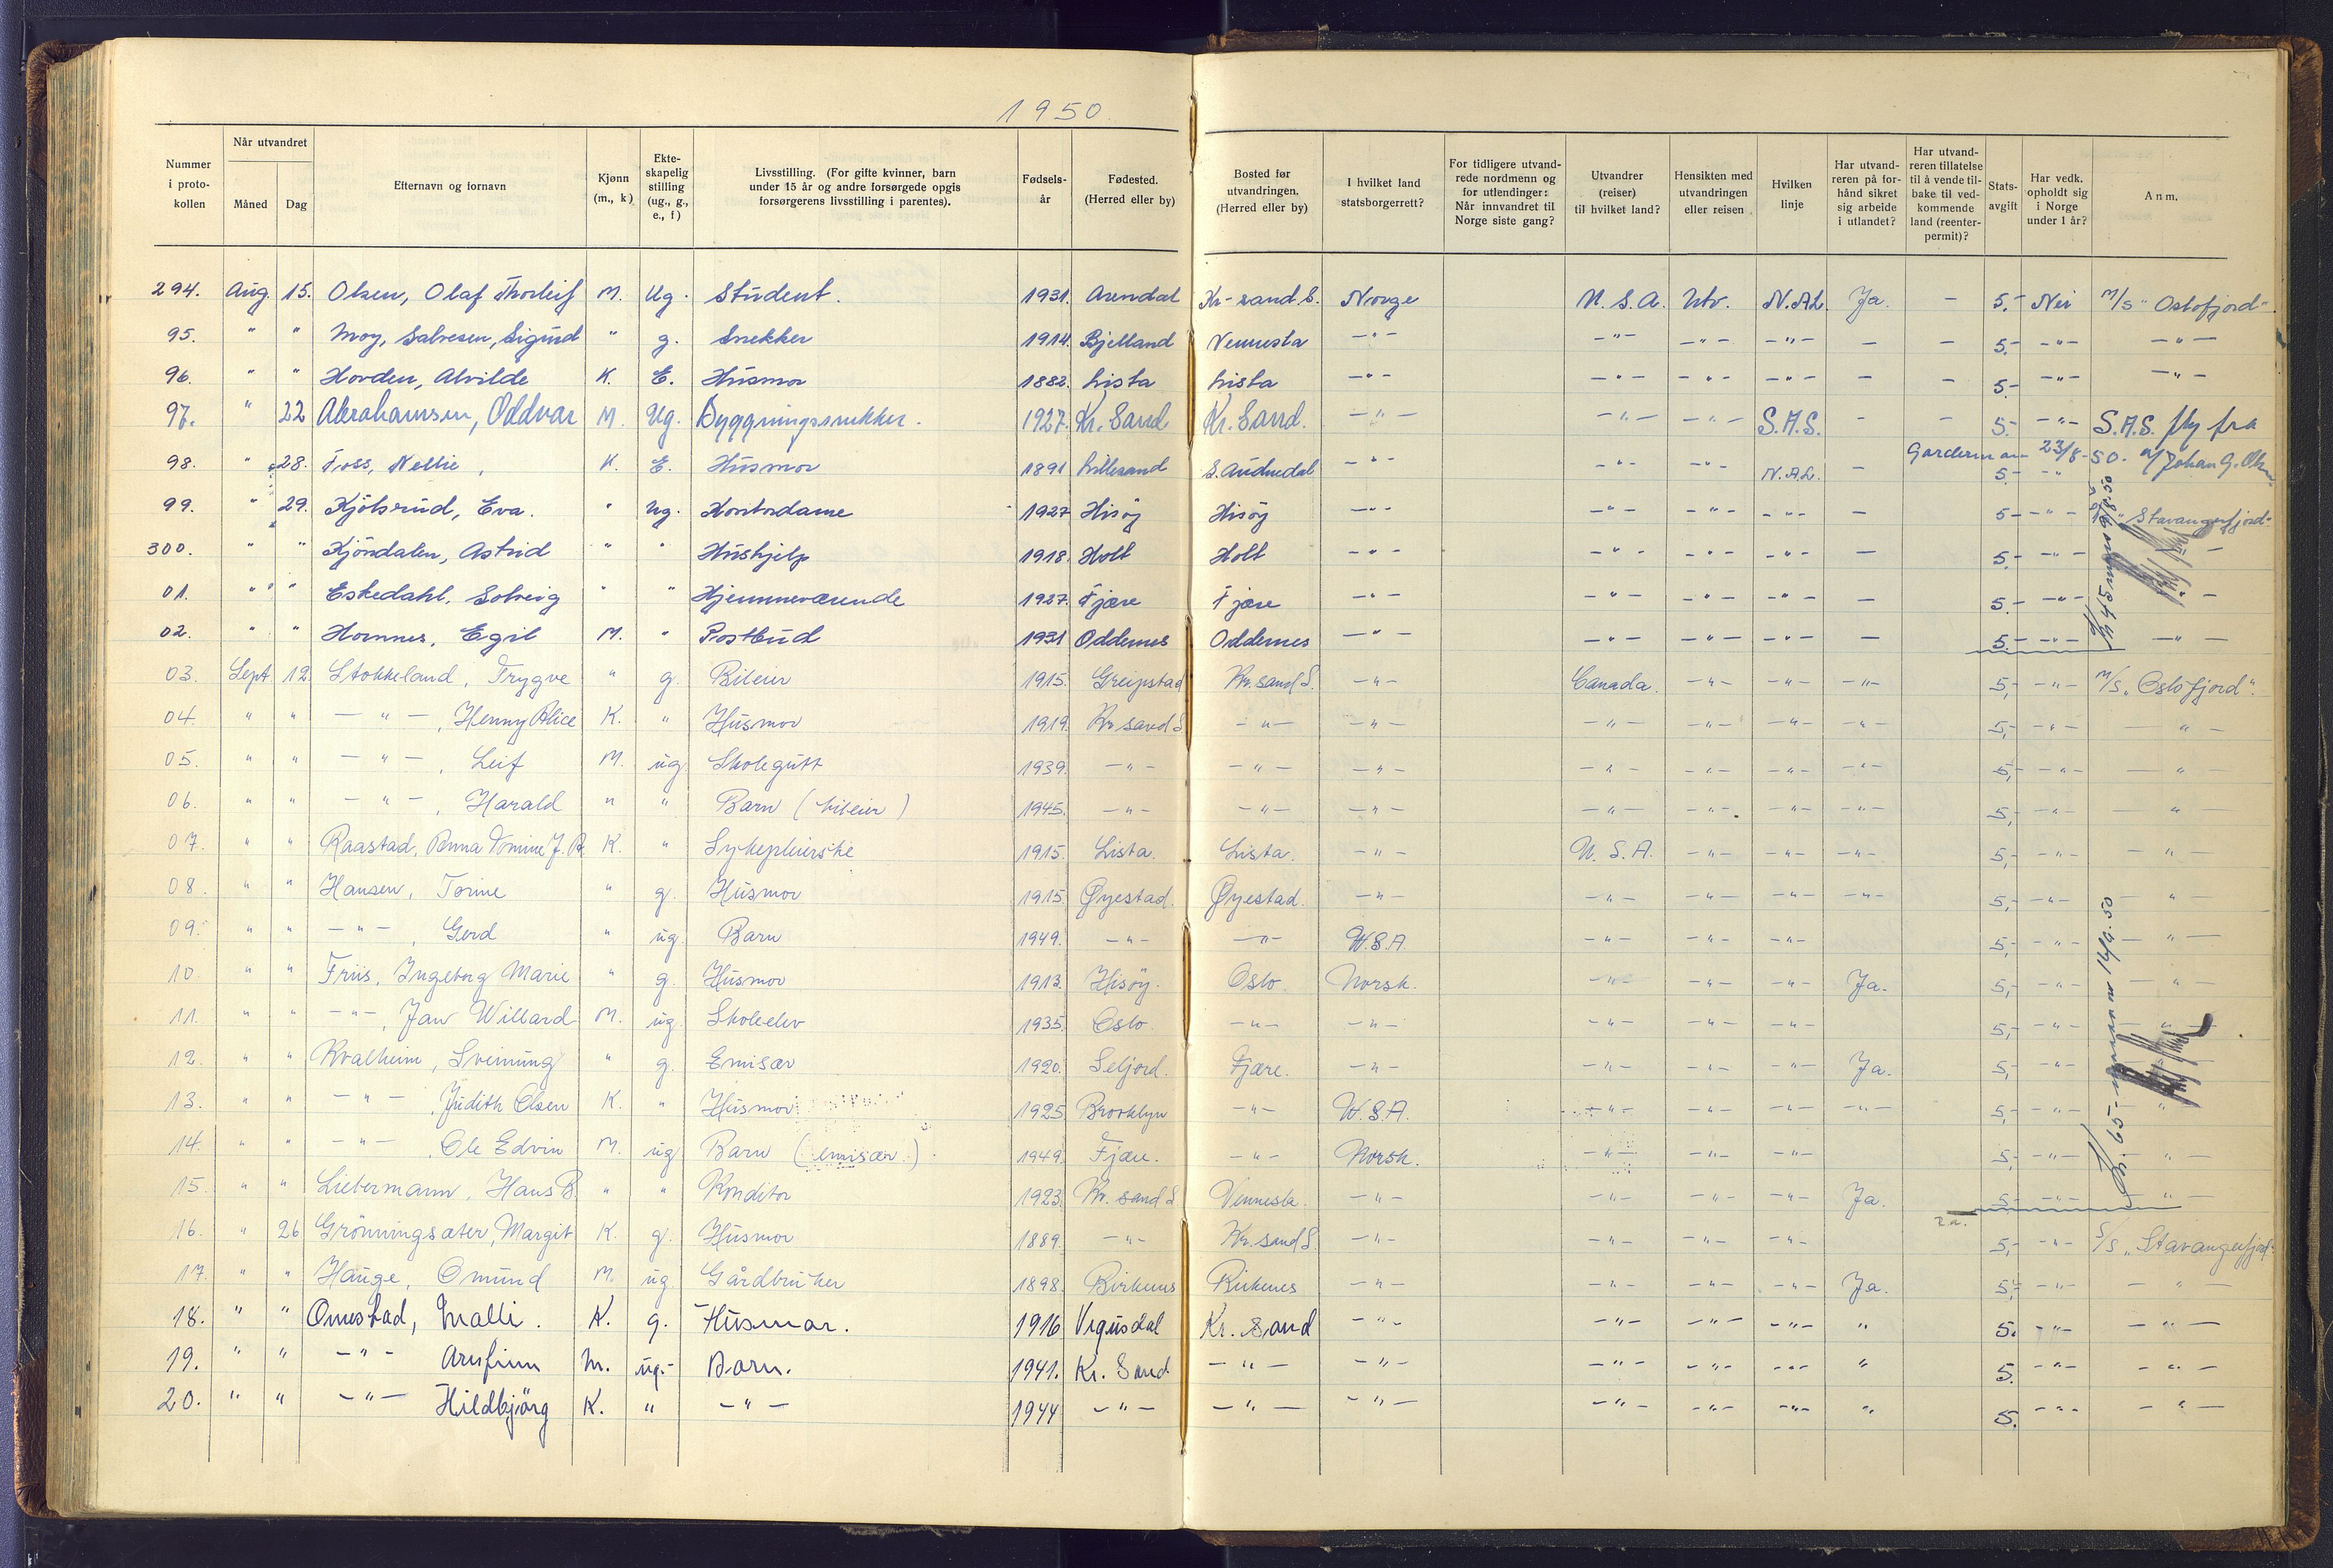 1950
Nummer i protokollen | Når utvandret Måned | Dag | Efternavn og fornavn | Kjønn (m., k) | Ekteskapelig stilling (ug., g., e., f) | Livsstilling. (For gifte kvinner, barn under 15 år og andre forsørgede opgis forsørgerens livsstilling i parentes). | Fødselsår | Fødested. (Herred eller by) | Bosted før utvandringen. (Herred eller by) | I hvilket land statsborgerrett? | For tidligere utvandrede nordmenn og for utlendinger: Når innvandret til Norge siste gang? | Utvandrer (reiser) til hvilket land? | Hensikten med utvandringen eller reisen | Hvilken linje | Har utvandreren på forhånd sikret sig arbeide i utlandet? | Har utvandreren tillatelse til å vende tilbake til vedkommende land (reenterpermit)? | Statsavgift | Har vedk. opholdt sig i Norge under 1 år? | Anm.
294. Aug. 15. Olsen, Olaf Thorleif M. Ug. Student. 1931. Arendal Kr-sand S. Norge U.S.A. Utv. N.A.L. Ja. - 5.- Nei M/S "Oslofjord".
95. " " Moy, Salvesen, Sigurd " g. Snekker 1914. Bjelland Vennesla -"- -"- -"- -"- - - 5.- -"- -"-
96. " " Horden, Alvilde K. E. Husmor 1882. Lista Lista -"- -"- -"- -"- - - 5.- -"- -"-
97. " 22 Abrahamsen, Oddvar M. Ug. Byggningssnekker. 1927. Kr. Sand Kr. Sand. -"- -"- -"- S.A.S. - - 5.- -"- S.A.S. fly fra
Gardermoen 23/8-50.
98. " 28. Foss, Nellie, K. E. Husmor 1891 Lillesand S. Audnedal -"- -"- -"- N.A.L. - 5.- -"-
99. " 29. Kjölsrud, Eva. " ug. Kontordame 1927 Hisöy Hisöy -"- -"- -"- -"- - 5.- -"- "Stavangerfjord"
300. " " Kjöndalen, Astrid " " Hushjelp 1918. Holt Holt -"- -"- -"- -"- - 5.- -"-
01. " " Eskedahl, Solveig " " Hjemmeværende 1927. Fjære Fjære -"- -"- -"- -"- - 5.- -"- -"-
02. " " Hornnes, Egil M. " Postbud 1931 Oddernes Oddernes -"- -"- -"- -"- - 5.- -"- -"-
03. Sept 12. Stokkeland, Trygve " g. Bileier 1915. Greipstad Kr. sand S. -"- Canada. -"- -"- -"- 5,- -"- M/S "Oslofjord".
04. " " -"-, Henny Alice K. " Husmor 1919. Kr sand S -"- -"- -"- -"- -"- -"- 5,- -"- -"-
05. " " -"-, Leif M. ug. Skolegutt 1939. -"- -"- -"- -"- -"- -"- -"- 5,- -"- -"-
06. " " -"-, Harald " " Barn (bileier) 1945. -"- -"- -"- -"- -"- -"- -"- 5,- -"- -"-
07. " " Raastad, K. " Sykepleierske 1915. Lista. Lista. -"- U.S.A. -"- -"- -"- 5,- -"- -"-
08. " " Hansen, Torine " g. Husmor 1915. Øyestad. Øyestad. -"- -"- -"- -"- -"- 5,- -"- "
09. " " -"-, Gerd " ug. Barn 1949. -"- -"- U.S.A. -"- -"- -"- 5,- -"- -"-
10. " " Friis, Ingeborg Marie " g. Husmor 1913. Hisöy. Oslo. Norsk. -"- -"- -"- Ja. 5,- -"- -"-
11. " " -"-, Jan Willard M. ug. Skoleelev 1935. Oslo -"- -"- -"- -"- -"- 5,- -"- "
12. " " Kvalheim, Sveinung " g. Emisær 1920. Seljord. Fjære. -"- -"- -"- -"- Ja. 5,- -"-
13. " " -"-, Judith Olsen K. " Husmor 1925. Brooklyn -"- U.S.A. -"- -"- -"- -"- 5,- -"- "
14. " " -"-, Ole Edvin M. ug Barn (emisær.) 1949. Fjære. -"- Norsk. -"- -"- -"- 5,- -"- -"-
15. " " Liebermann, Hans B. " " Konditor 1923. Kr. sand S. Vennesla. -"- -"- -"- -"- Ja. 5,- -"- -"-
16. " 26 Grönningsæter, Margit K. g. Husmor 1889. -"- Kr. sand S. -"- -"- -"- -"- 5,- -"- S/S "Stavangerfjord".
17. " " Hauge, Omund M. ug. Gårdbruker 1898. Birkenes Birkenes -"- -"- -"- -"- Ja. 5,- -"- -"-
18. " " Omestad, Malli. K. g. Husmor. 1916 Vigusdal Kr. Sand -"- -"- -"- -"- " 5. -"- -"-
19. " " -"- Arnfinn M. ug.- Barn. 1941. Kr. Sand -"- -"- -"- -"- -"- " 5. -"- -"-
20. " " -"- Hildbjörg K. " -"- 1944 -"- -"- -"- -"- -"- -"- " 5. -"- -"-